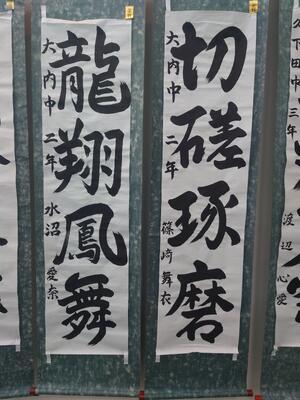 切磋琢磨
大内中 二年 篠崎舞衣
龍翔鳳舞
大内中 二年 水沼愛奈
三年 渡辺心愛